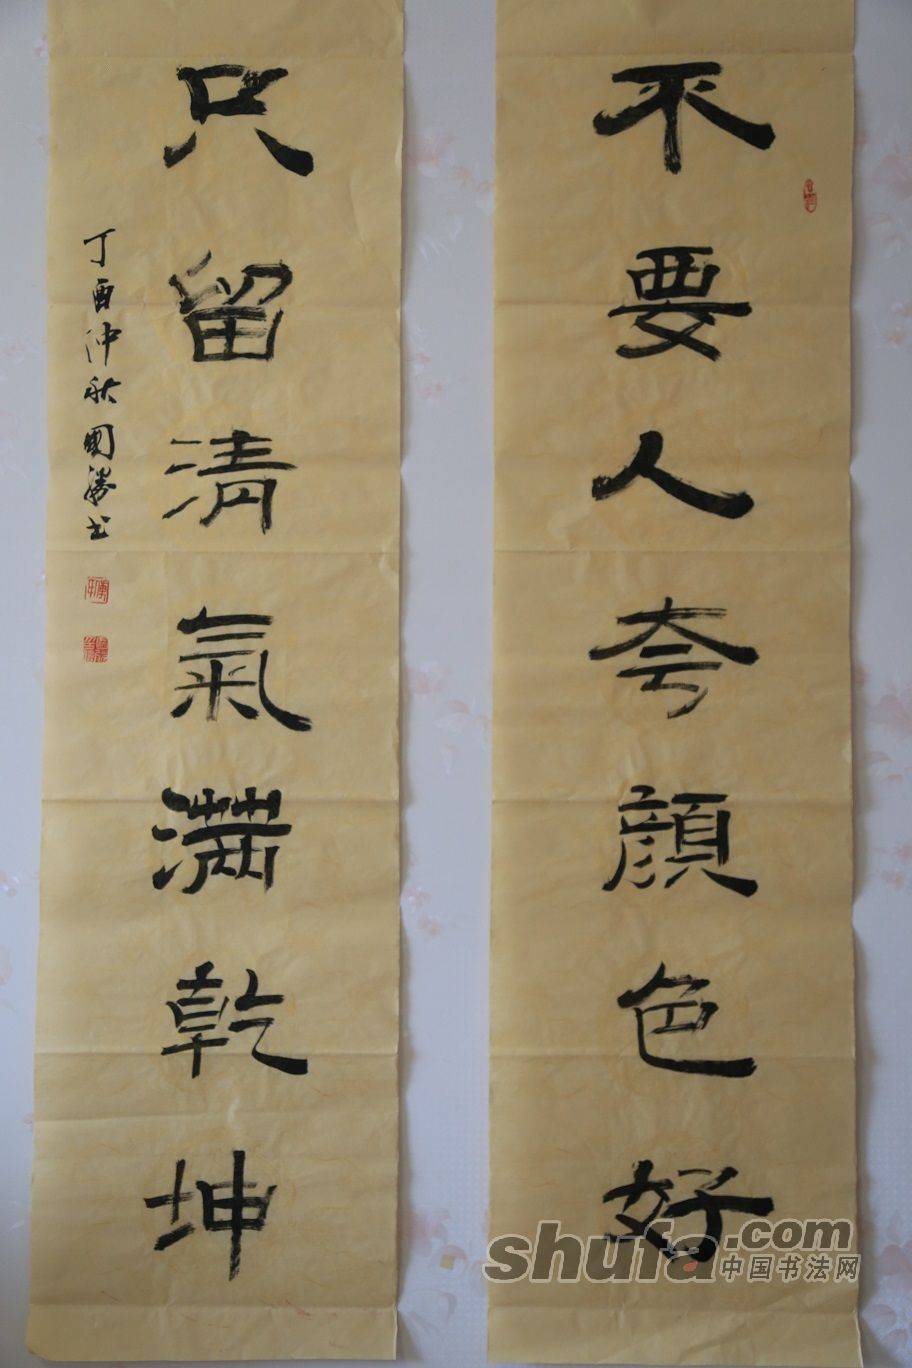 不要人夸顔色好
只留清氣滿乾坤
丁酉仲秋國勝书
shufa.com
中国书法网